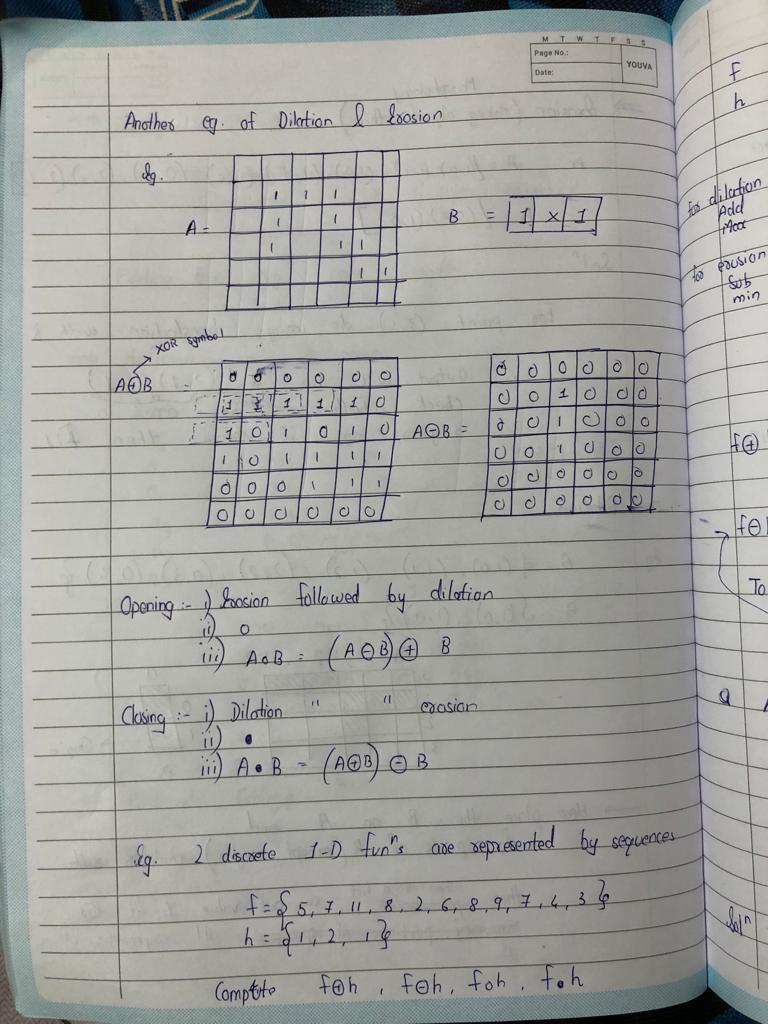 M T W T F S S
Page No.:
Date:
YOUVA
Another eg. of Dilation & Erosion
Eg.
A =
1 1 1
1 1
1 1 1
1 1
B = 1 x 1
XOR symbol
A⊕B =
0 0 0 0 0 0
1 1 1 1 1 0
1 0 1 0 1 0
1 0 1 1 1 1
0 0 0 1 1 1
0 0 0 0 0 0
A⊖B =
0 0 0 0 0 0
0 0 1 0 0 0
0 0 1 0 0 0
0 0 1 0 0 0
0 0 0 0 0 0
0 0 0 0 0 0
Opening :- i) Erosion followed by dilation
ii) o
iii) A∘B = (A⊖B) ⊕ B
Closing :- i) Dilation " " erosion
ii) •
iii) A•B = (A⊕B) ⊖ B
Eg. 2 discrete 1-D funⁿs are represented by sequences
f = {5, 7, 11, 8, 2, 6, 8, 9, 7, 4, 3}
h = {1, 2, 1}
Compute f⊕h, f⊖h, f∘h, f•h
f
h
for dilation
Add
Max
for erosion
Sub
min
f⊕
f⊖
To
Q
Solⁿ